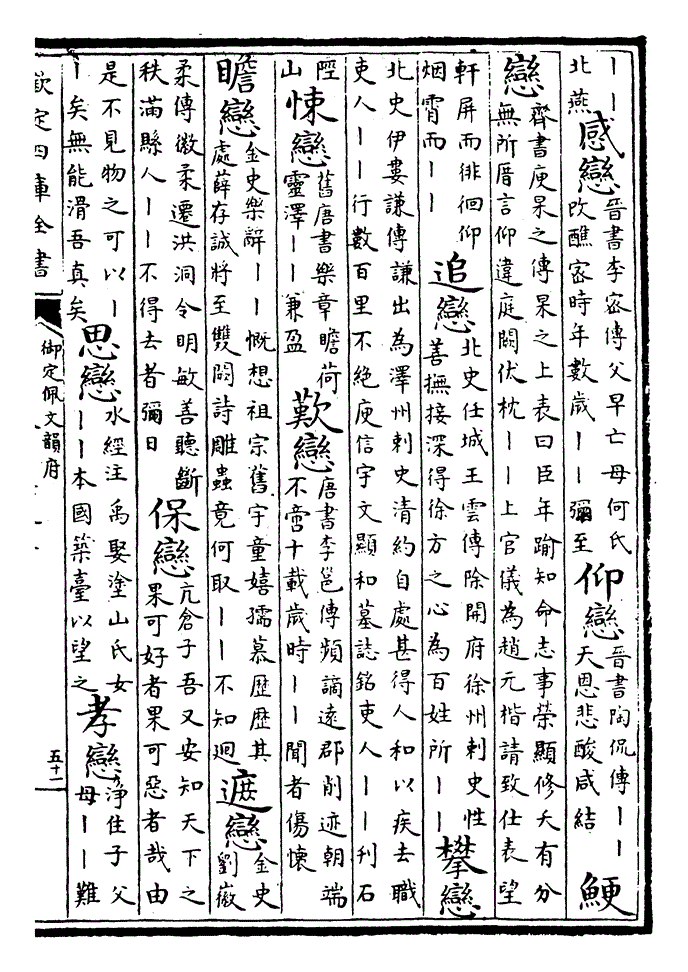 丨丨
北燕
感戀
晉書李密傳父早亡母何氏
改醮密時年數歲丨丨彌至
仰戀
晉書陶侃傳丨丨
天恩悲酸咸結
鯁
戀
齊書庾杲之傳杲之上表曰臣年踰知命志事榮顯修夭有分
無所厝言仰違庭闕伏枕丨丨上官儀為趙元楷請致仕表望
軒屏而徘徊仰
烟霄而丨丨
追戀
北史任城王雲傳除開府徐州刺史性
善撫接深得徐方之心為百姓所丨丨
攀戀
北史伊婁謙傳謙出為澤州刺史清約自處甚得人和以疾去職
吏人丨丨行數百里不絶庾信宇文顯和墓誌銘吏人丨丨刋石
陘
山
悚戀
舊唐書樂章瞻荷
靈澤丨丨兼盈
歎戀
唐書李邕傳頻謫遠郡削迹朝端
不啻十載歲時丨丨聞者傷懷
瞻戀
金史樂辭丨丨慨想祖宗舊宇童嬉孺慕歴歴其
處薛存誠將至雙闕詩雕蟲竟何取丨丨不知迴
遮戀
金史
劉徽
柔傳徽柔遷洪洞令明敏善聽斷
秩滿縣人丨丨不得去者彌日
保戀
亢倉子吾又安知天下之
果可好者果可惡者哉由
是不見物之可以丨
丨矣無能滑吾真矣
思戀
水經注禹娶塗山氏女
丨丨本國築臺以望之
孝戀
淨住子父
母丨丨難
欽定四庫全書
御定佩文韻府